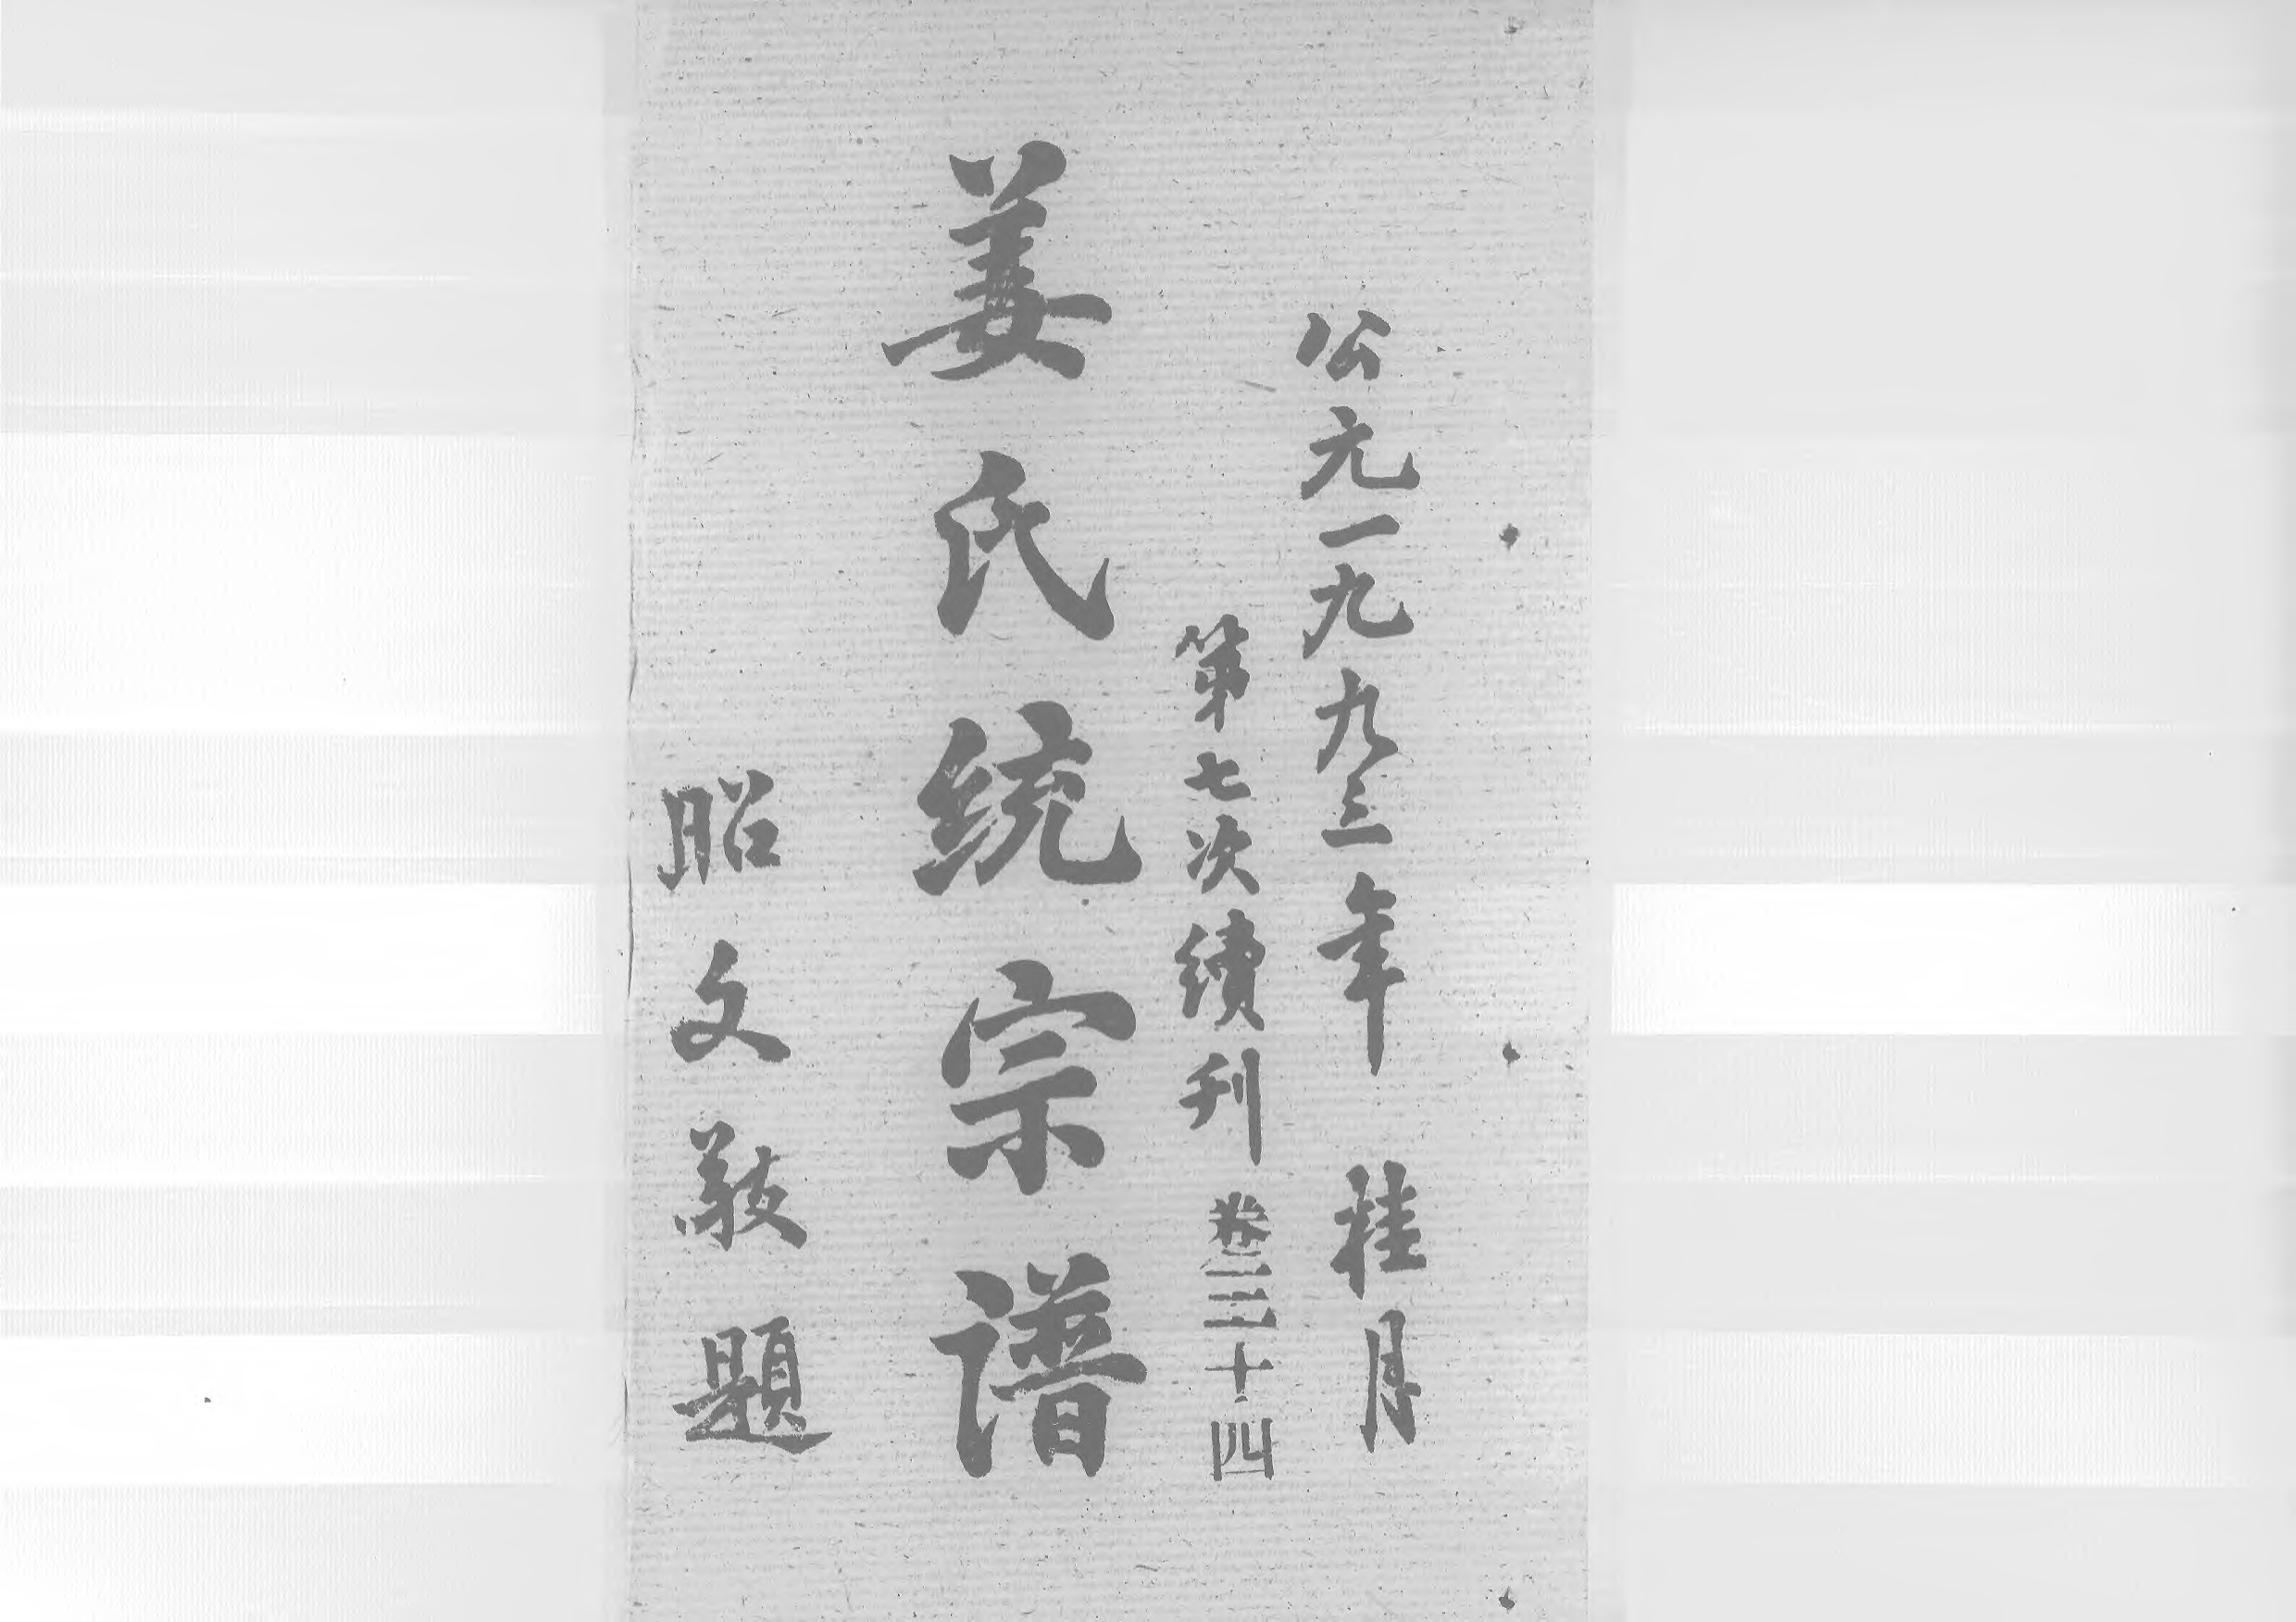 公元一九九三年 桂月
第七次續刊 卷三十四
姜氏统宗谱
昭文敬題